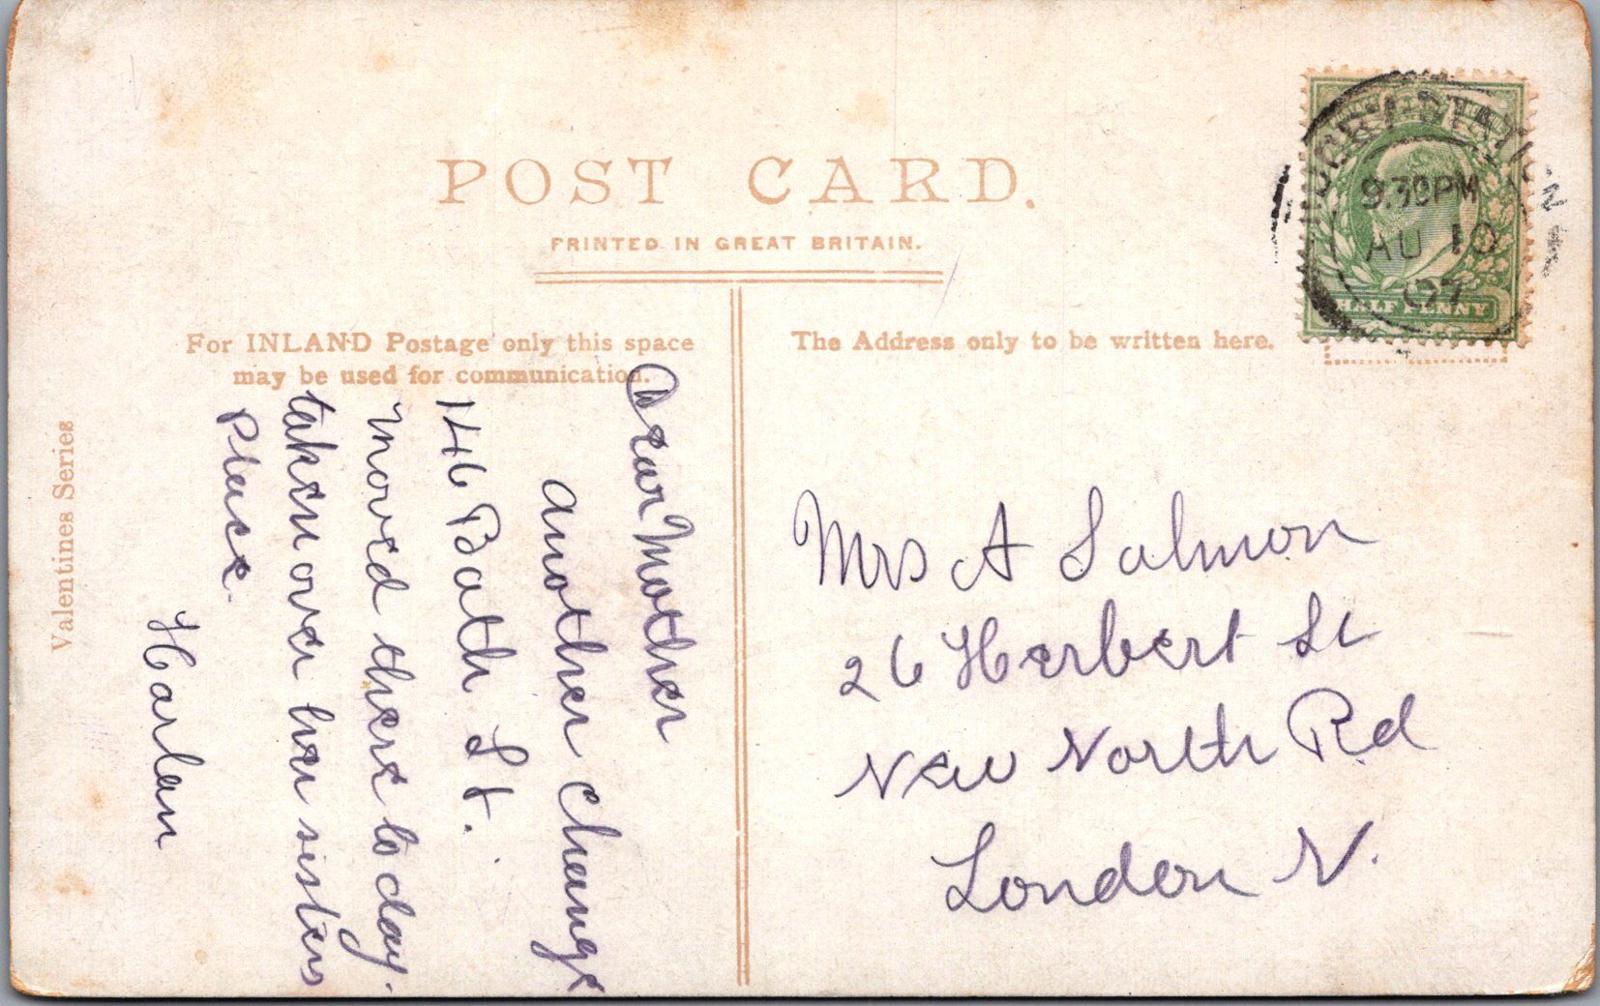 POST CARD.
PRINTED IN GREAT BRITAIN.
For INLAND Postage only this space
may be used for communication.
The Address only to be written here.
Valentines Series
9.30PM
AU 10
07
HALF PENNY
Dear Mother
Another change
146 Bath St.
moved there to day.
taken over her sisters
Place.
Harlan
Mrs A Salmon
26 Herbert St
New North Rd
London N.